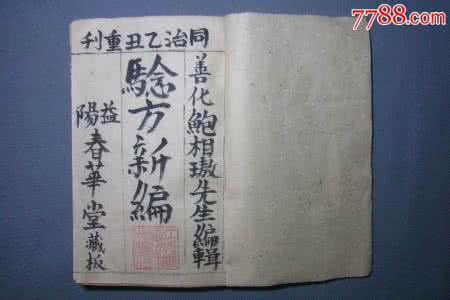 7788.com
同治乙丑重刊
善化鮑相璈先生編輯
驗方新編
益陽
春華堂藏板